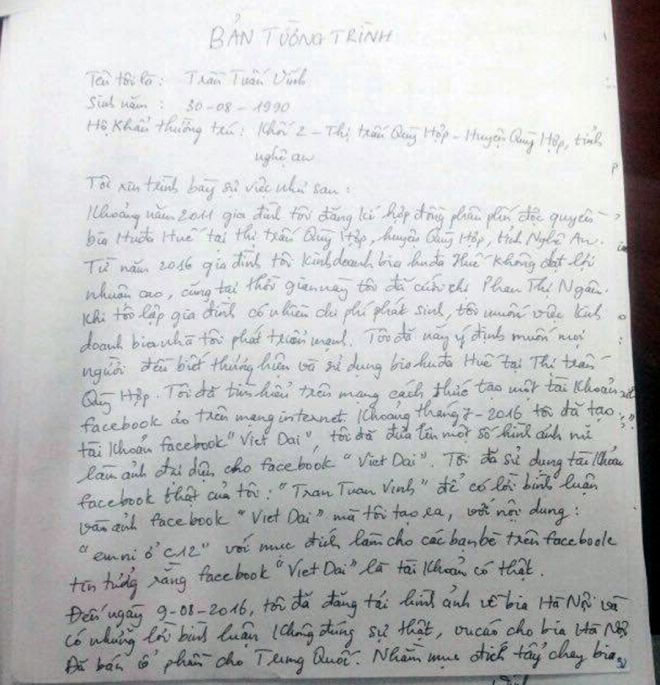 BẢN TƯỜNG TRÌNH
Tên tôi là : Trần Tuấn Vĩnh
Sinh năm : 30-08-1990
Hộ khẩu thường trú : Khối 2 - Thị trấn Quỳ Hợp - Huyện Quỳ Hợp, tỉnh
nghệ an
Tôi xin trình bày sự việc như sau :
Khoảng năm 2011 gia đình tôi đăng kí hợp đồng phân phối độc quyền
bia Huda Huế tại thị trấn Quỳ Hợp, huyện Quỳ Hợp, tỉnh Nghệ An.
Từ năm 2016 gia đình tôi kinh doanh bia huda Huế không đạt lợi
nhuận cao, cũng tại thời gian này tôi đã cưới chị Phan Thị Ngân.
Khi tôi lập gia đình có nhiều chi phí phát sinh, tôi muốn việc kinh
doanh bia nhà tôi phát triển mạnh. Tôi đã nảy ý định muốn mọi
người đến biết thương hiệu và sử dụng bia huda Huế tại Thị trấn
Quỳ Hợp. Tôi đã tìm hiểu trên mạng cách thức tạo một tài khoản
facebook ảo trên mạng internet. Khoảng tháng 7-2016 tôi đã tạo
tài khoản facebook "Viet Dai", tôi đã đưa lên một số hình ảnh nữ
làm ảnh đại diện cho facebook "Viet Dai". Tôi đã sử dụng tài khoản
facebook thật của tôi : "Tran Tuan Vinh" để có lời bình luận
vào ảnh facebook "Viet Dai" mà tôi tạo ra, với nội dung :
"em ni ở C12" với mục đích làm cho các bạn bè trên facebook
tin tưởng rằng facebook "Viet Dai" là tài khoản có thật.
Đến ngày 9-08-2016, tôi đã đăng tải hình ảnh về bia Hà Nội và
có những lời bình luận không đúng sự thật, vu cáo cho bia Hà Nội
Đã bán cổ phần cho Trung Quốc. Nhằm mục đích tẩy chay bia